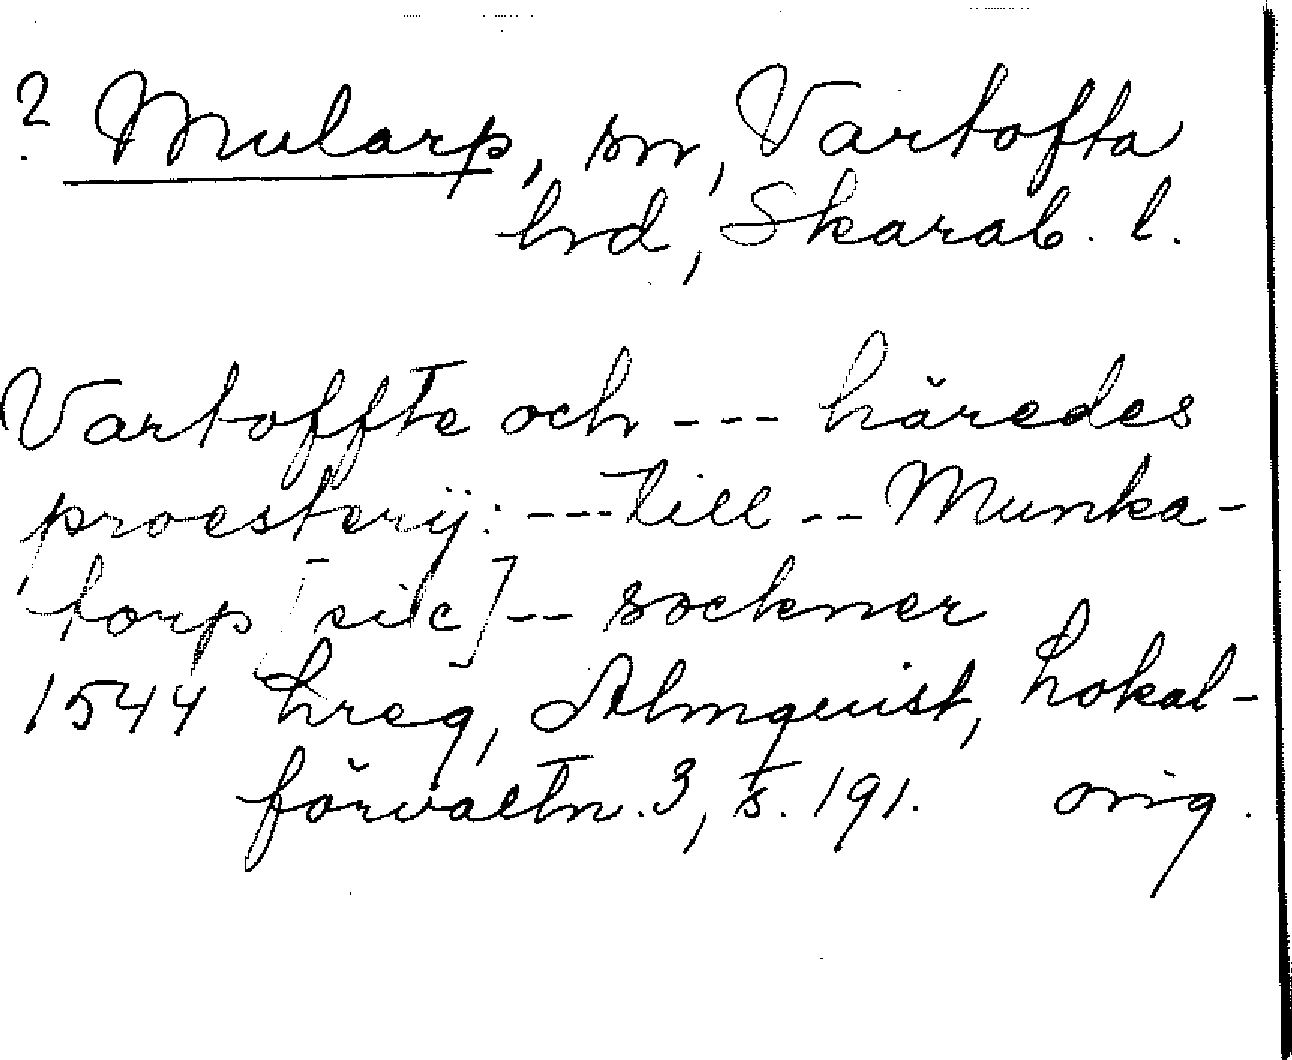 ? Mularp, sn, Vartofta
hrd, Skarab. l.
Vartoffte och --- häredes
proesterij: --- till -- Munka-
torp [sic] -- sockner
1544 Lreg, Almquist, Lokal-
förvaltn. 3, s. 191. orig.